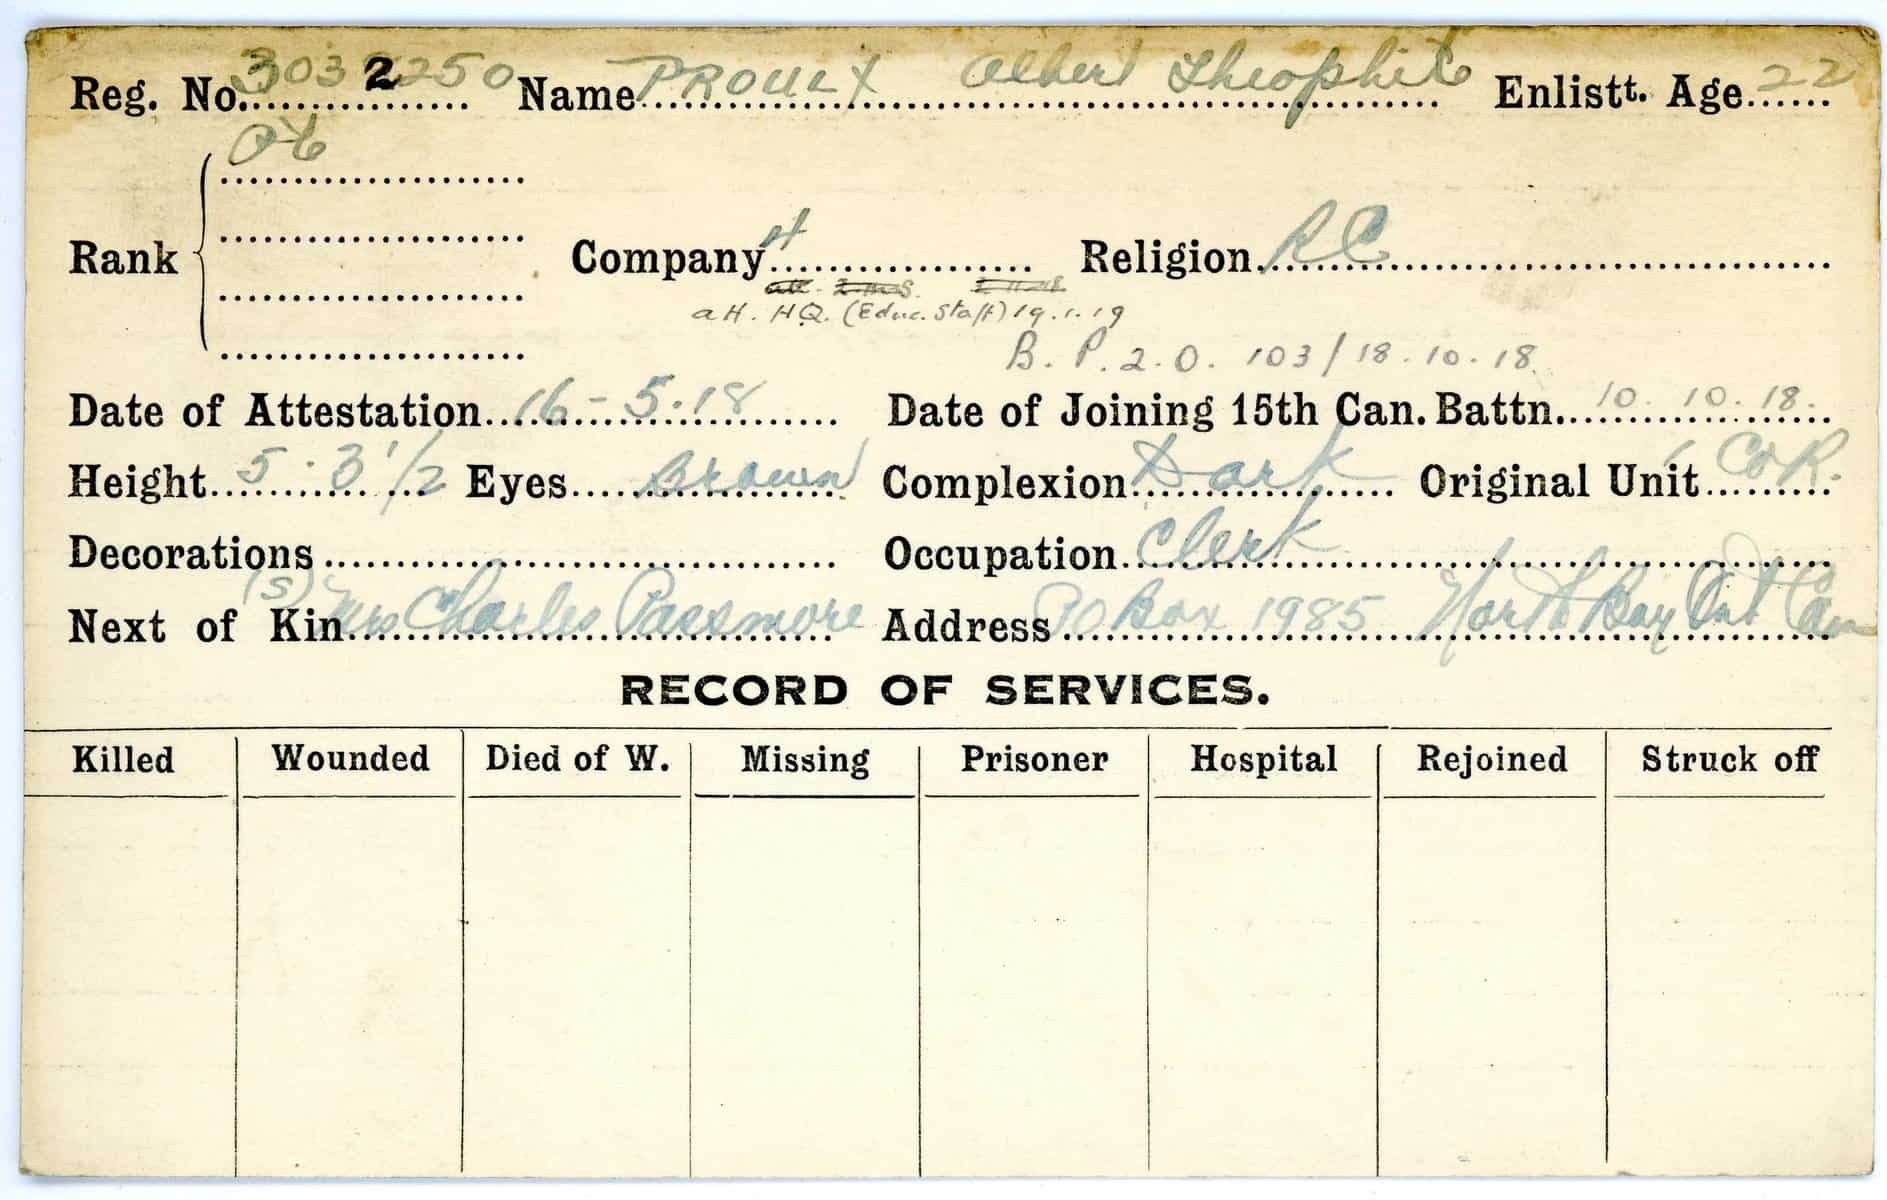 Reg. No. 3032250 Name PROULX Albert Theophile Enlistt. Age 22
Pte
Rank Company Religion RC
att. HQ. (Educ. Staff) 19.1.19
B. P. 2. O. 103/18.10.18.
Date of Attestation 16-5.18 Date of Joining 15th Can. Battn. 10.10.18.
Height 5.3 1/2 Eyes Brown Complexion Dark Original Unit 1 C.O.R.
Decorations Occupation Clerk
Next of Kin (S) Mrs Charles Passmore Address PO Box 1985 North Bay Ont Can
RECORD OF SERVICES.
Killed Wounded Died of W. Missing Prisoner Hospital Rejoined Struck off